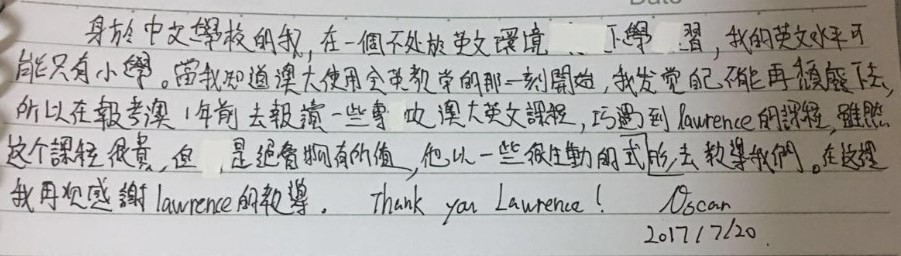 身於中文學校的我,在一個不处於英文環境 下學 習,我的英文水平可
能只有小學。當我知道澳大使用全英教学的那一刻開始,我发觉自己不能再頹廢下去,
所以在報考澳 1年前去報讀一些專 攻澳大英文課程,巧遇到lawrence的課程,雖然
这个課程很貴,但 是絕對物有所值,他以一些很生動的形式去教導我們。在这裡
我再次感謝lawrence的教導. Thank you Lawrence! Oscar
2017/7/20.